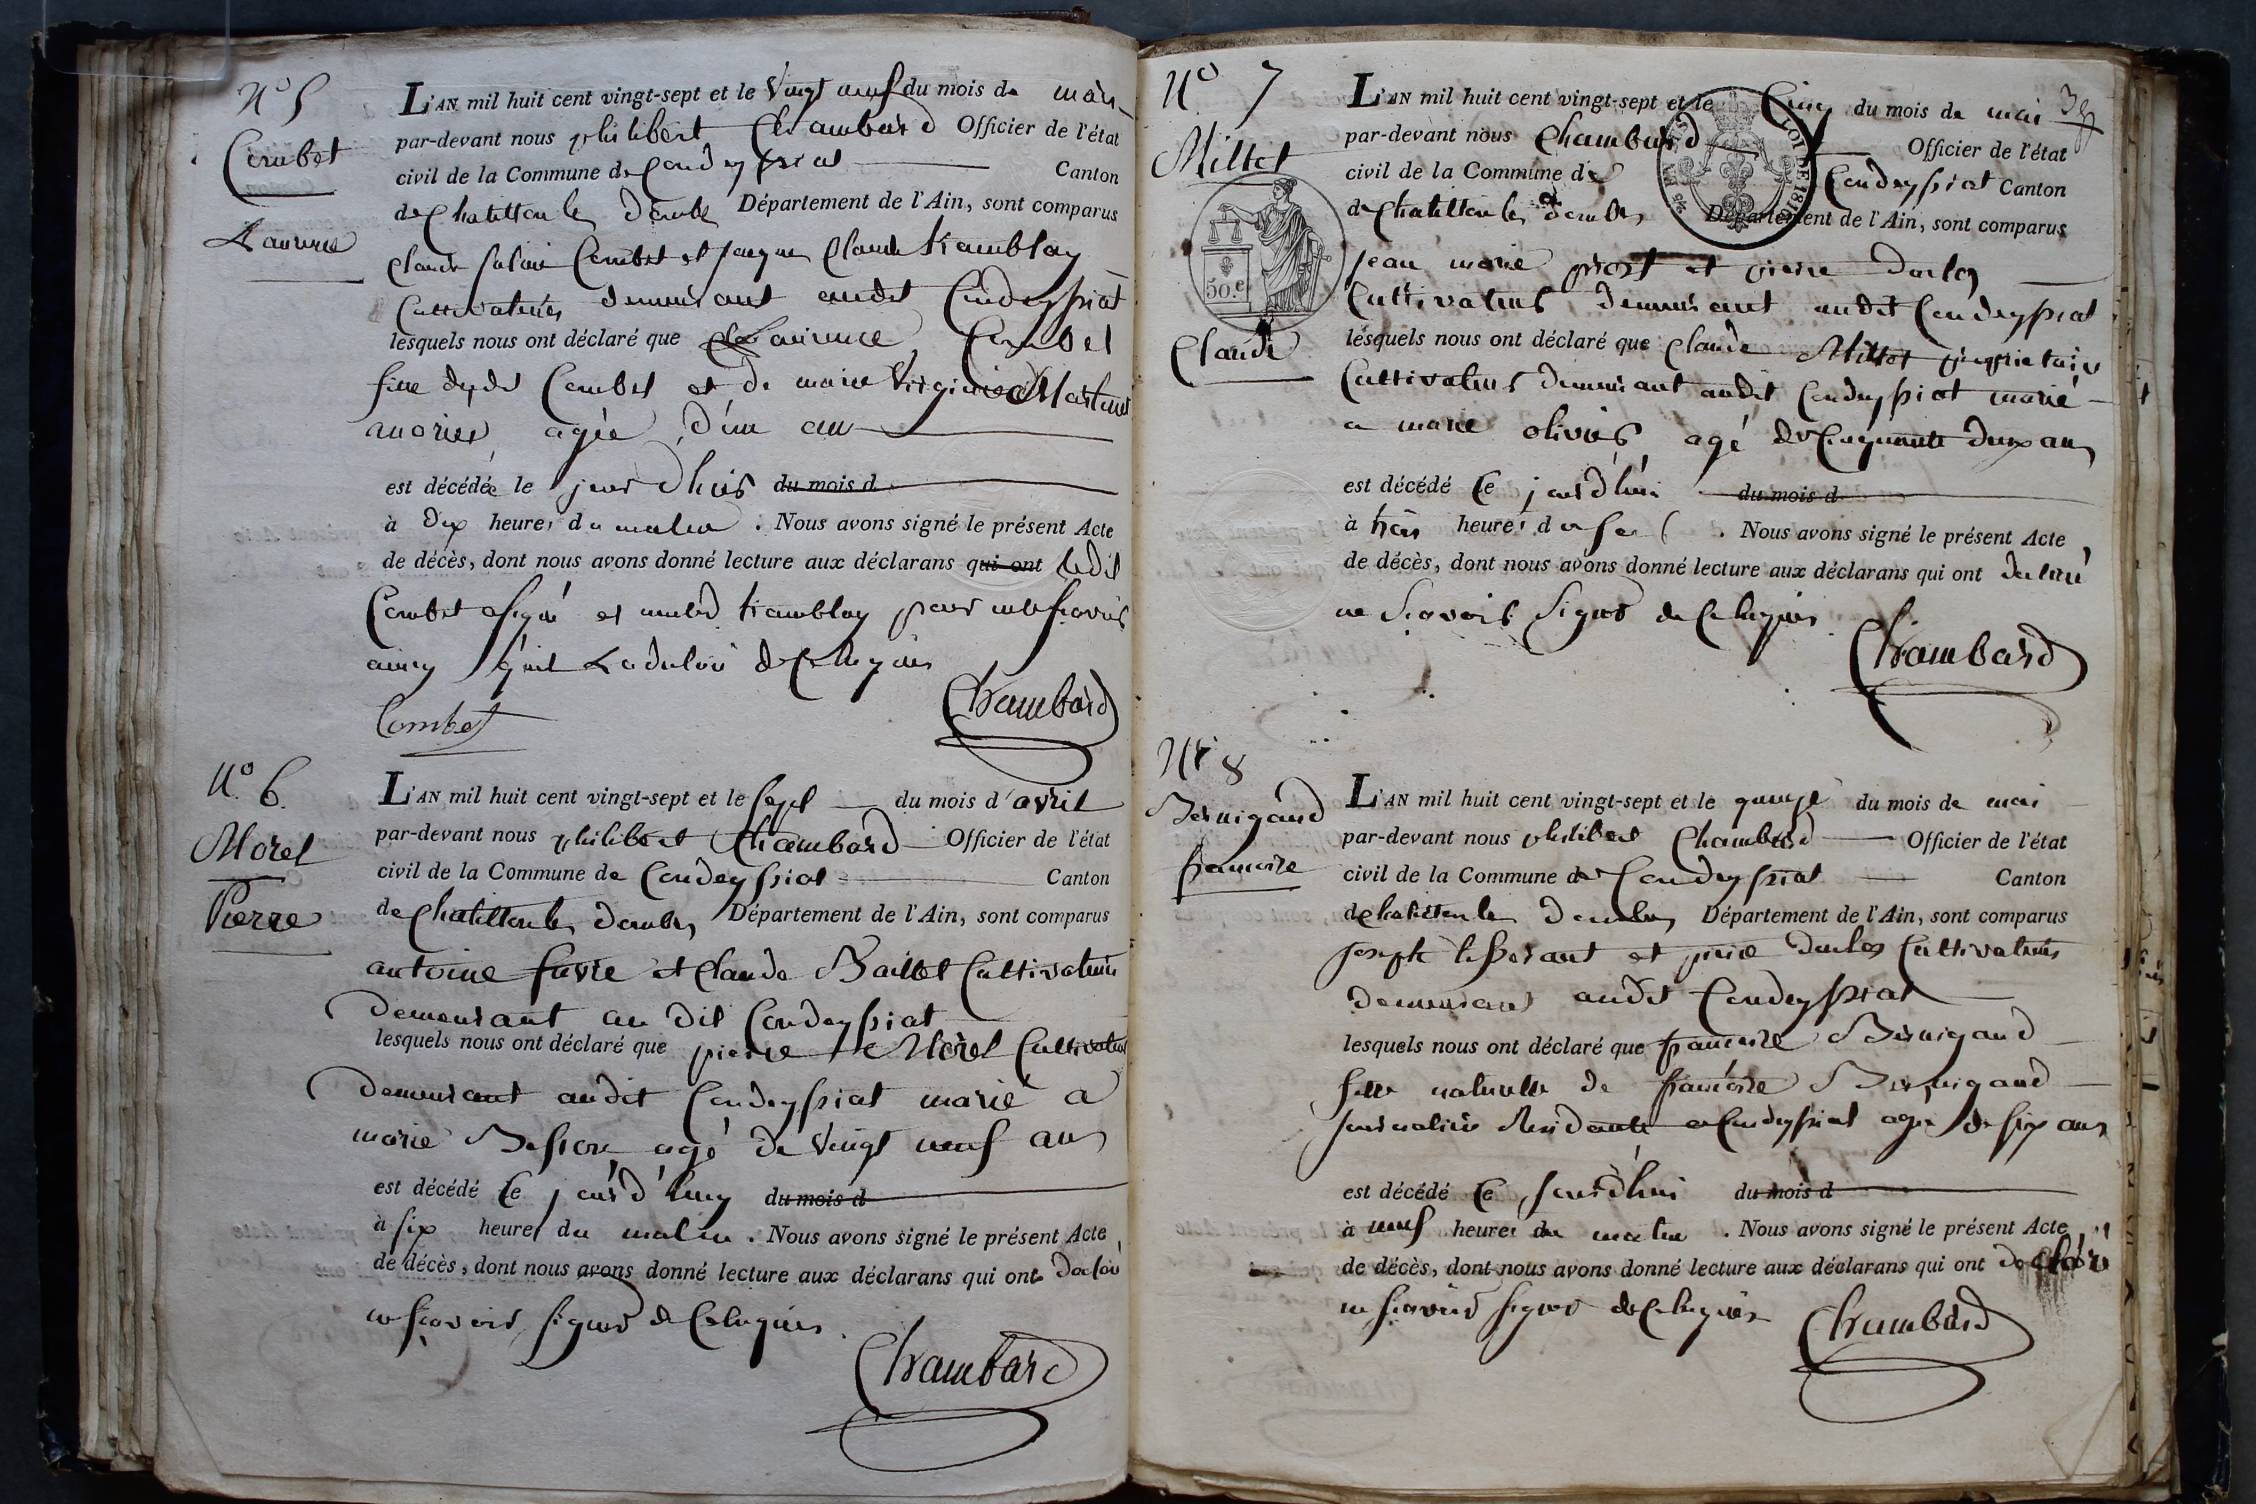 N° 5
Combet
Laurence
L'AN mil huit cent vingt-sept et le Vingt neuf du mois de mars
par-devant nous philibert Chambard Officier de l'état
civil de la Commune de Condeyssiat Canton
de Chatillon les Dombes Département de l'Ain, sont comparus
Claude Combet et Claude tramblay
Cultivateurs demeurant audit Condeyssiat
lesquels nous ont déclaré que Laurence Combet
fille dudit Combet et de marie Virginie
mariés agée d'un an
est décédée le jourdhuis du mois d
à dix heures du matin . Nous avons signé le présent Acte
de décès, dont nous avons donné lecture aux déclarans qui ont ledit
Combet a signé et non led tramblay pour ne scavoir
ainsy quil La déclaré de Ce requis
Combet
Chambard
N° 6.
Morel
Pierre
L'AN mil huit cent vingt-sept et le Sept du mois d'avril
par-devant nous philibert Chambard Officier de l'état
civil de la Commune de Condeyssiat Canton
de Chatillon les Dombes Département de l'Ain, sont comparus
antoine favre et Claude Baillet Cultivateurs
Demeurant au dit Condeyssiat
lesquels nous ont déclaré que pierre Morel Cultivateur
Demeurant audit Condeyssiat marié a
marie agé de Vingt neuf ans
est décédé Ce jourd'huy du mois d
à six heures du matin . Nous avons signé le présent Acte
de décès, dont nous avons donné lecture aux déclarans qui ont déclaré
ne scavoir signer de Ce requis
Chambard
N° 7
Millet
Claude
50.c
LOI DE 1816
L'AN mil huit cent vingt-sept et le Cinq du mois de mai
par-devant nous Chambard Officier de l'état
civil de la Commune de Condeyssiat Canton
de Chatillon les Dombes Département de l'Ain, sont comparus
jean marie prost et pierre
Cultivateurs demeurant audit Condeyssiat
lesquels nous ont déclaré que Claude Millet proprietaire
Cultivateur demeurant audit Condeyssiat marié
a marie olivier agé de Cinquante deux ans
est décédé Ce jourd'hui du mois d
à trois heures du soir . Nous avons signé le présent Acte
de décès, dont nous avons donné lecture aux déclarans qui ont déclaré
ne scavoir signer de Ce requis
Chambard
N° 8
Bernigaud
francoise
L'AN mil huit cent vingt-sept et le quinze du mois de mai
par-devant nous philibert Chambard Officier de l'état
civil de la Commune de Condeyssiat Canton
de chatillon les Dombes Département de l'Ain, sont comparus
joseph et pierre Cultivateurs
demeurant audit Condeyssiat
lesquels nous ont déclaré que francoise Bernigaud
fille naturelle de francoise Bernigaud
journaliere Residante a Condeyssiat agée de six ans
est décédé Ce jourd'hui du mois d
à neuf heures du matin . Nous avons signé le présent Acte
de décès, dont nous avons donné lecture aux déclarans qui ont déclaré
ne scavoir signer de Ce requis
Chambard